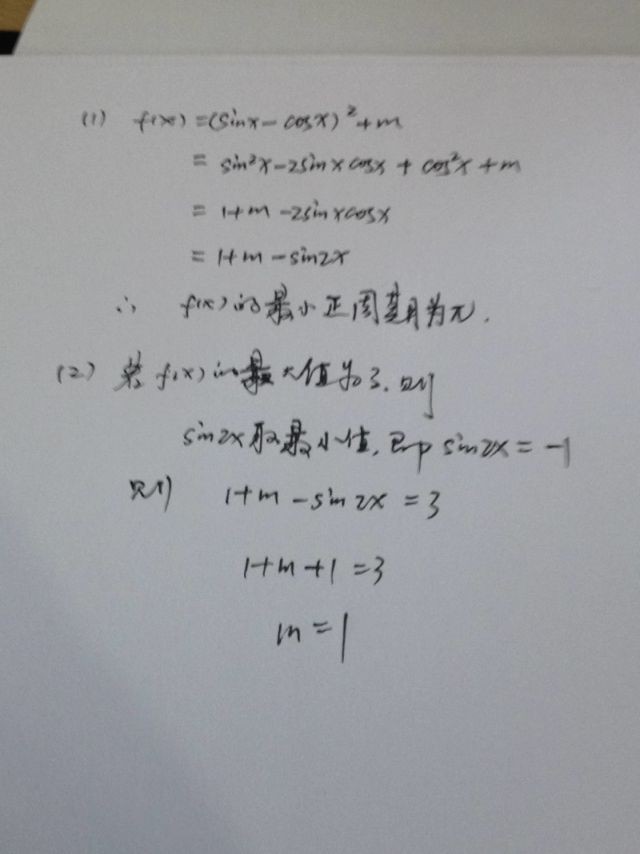 (1) f(x) = (sinx - cosx)² + m
= sin²x - 2sinxcosx + cos²x + m
= 1+m - 2sinxcosx
= 1+m - sin2x
∴ f(x)的最小正周期为π.
(2) 若f(x)的最大值为3,则
sin2x取最小值,即sin2x = -1
则 1+m - sin2x = 3
1+m+1 = 3
m = 1